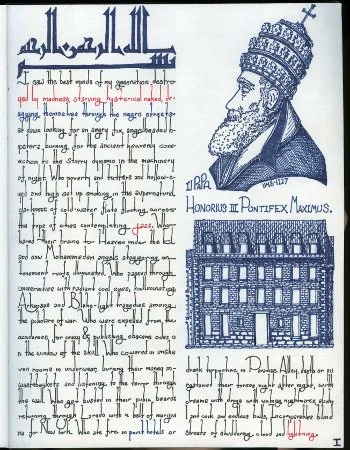 بسم الله الرحمن الرحيم
I saw the best minds of my generation destro-
yed by madness, starving hysterical naked, dr-
agging themselves through the negro streets
at dawn looking for an angry fix, angelheaded h-
ipsters burning for the ancient heavenly conn-
ection to the starry dynamo in the machinery
of night, Who poverty and tatters and hollow-e
yed and high sat up smoking in the supernatural
darkness of cold-water flats floating across
the tops of cities contemplating Jazz. Who
bared their brains to Heaven under the El
and saw Mohammedan angels staggering on
tenement roofs illuminated, Who passed through
universities with radiant cool eyes, hallucinating
Arkansas and Blake-light tragedies among
the scholars of war. Who were expelled from the
academies for crazy & publishing obscene odes o
n the windows of the skull. Who cowered in unsha
ven rooms in underwear, burning their money in
wastebaskets and listening to the terror through
the wall, Who got busted in their pubic beards
returning through Laredo with a belt of marijua
na for New York, Who ate fire in paint hotels or
PAPA
1148-1227
HONORIUS III PONTIFEX MAXIMUS.
drank turpentine in Paradise Alley, death or pu
rgatoried their torsos night after night, with
dreams with drugs with waking nightmares,
and cock and endless balls, incomparable blind
streets of shuddering cloud and lightning.
I